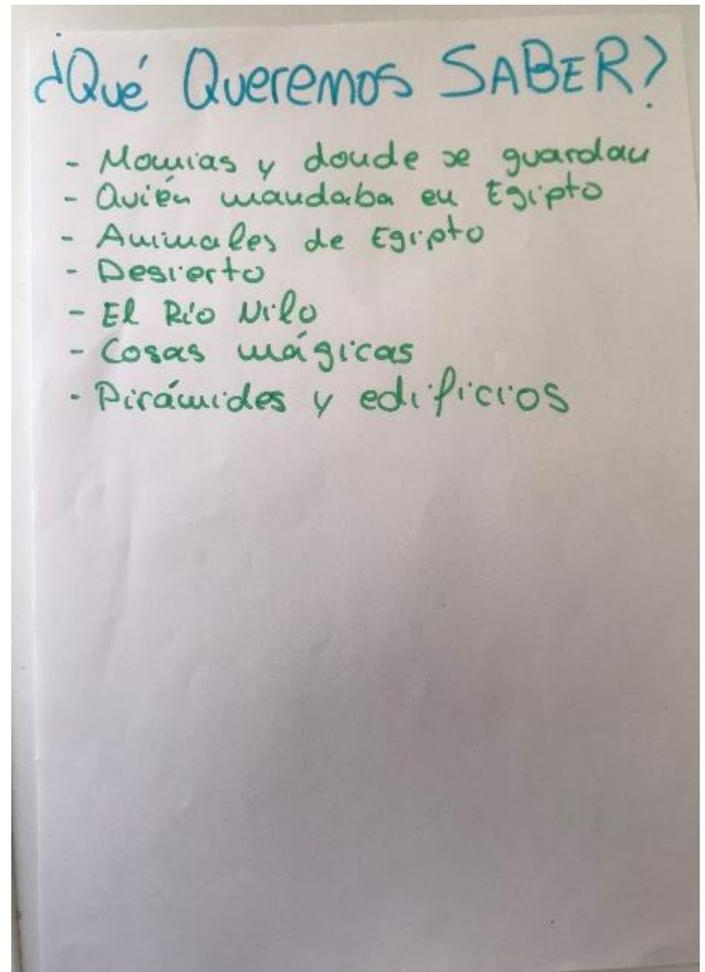 ¿Qué Queremos SABER?
- Momias y donde se guardan
- Quién mandaba en Egipto
- Animales de Egipto
- Desierto
- El Río Nilo
- Cosas mágicas
- Pirámides y edificios